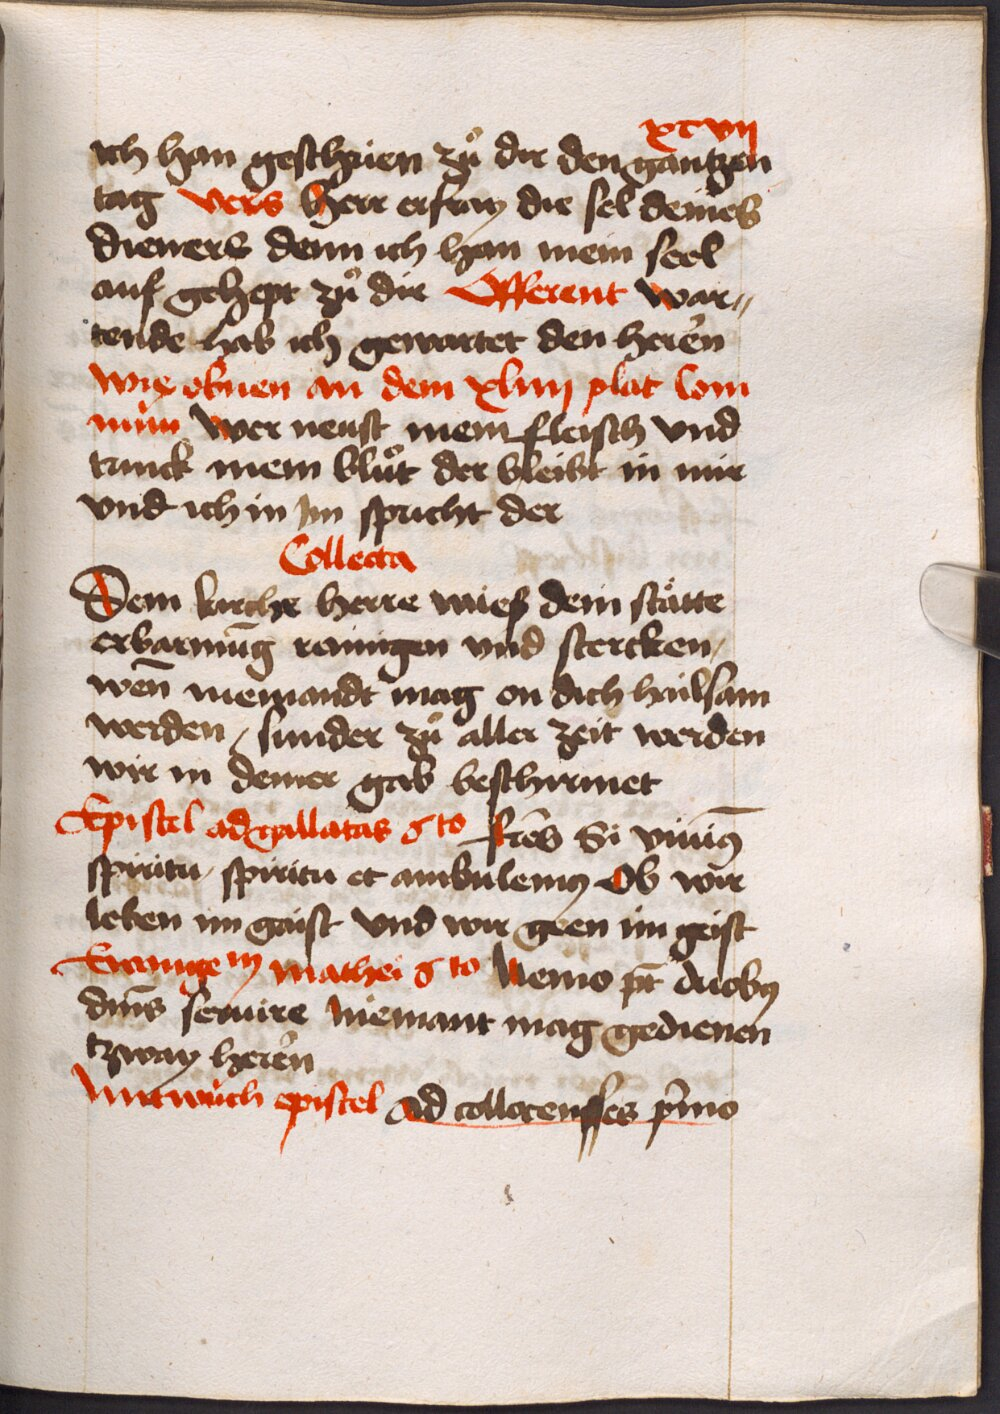 xcvij
ich han geschrien zů dir den gantzen
tag vers Herr erfray die sel deines
dieners denn ich han mein seel
auf gehept zů dir Offerent War„
tende hab ich gewartet den herẽn
wie obnen an dem xliiij plat Com
mun Wer neust mein fleisch vnd
trinck mein blůt der bleibt in mir
vnd ich in Jm spricht der
Collecta
Dein kirche herre mieß dein stätte
erbarmūg reinigen vnd stercken /
wen̄ niemandt mag on dich hailsam
werden / sunder zů aller zeit werden
wir in deiner gab beschirmet
Epistel ad gallatas 5 to fr̄es Si viuim9
spiritu / spiritu et ambulem9 Ob wir
leben im gaist vnd wir geen im geist
Ewange m mathei 6 to Nemo pt̄ duob9
dn̄is seruire Niemant mag gedienen
tzway herẽn
Mitwůch epistel ad collocensses pĩmo